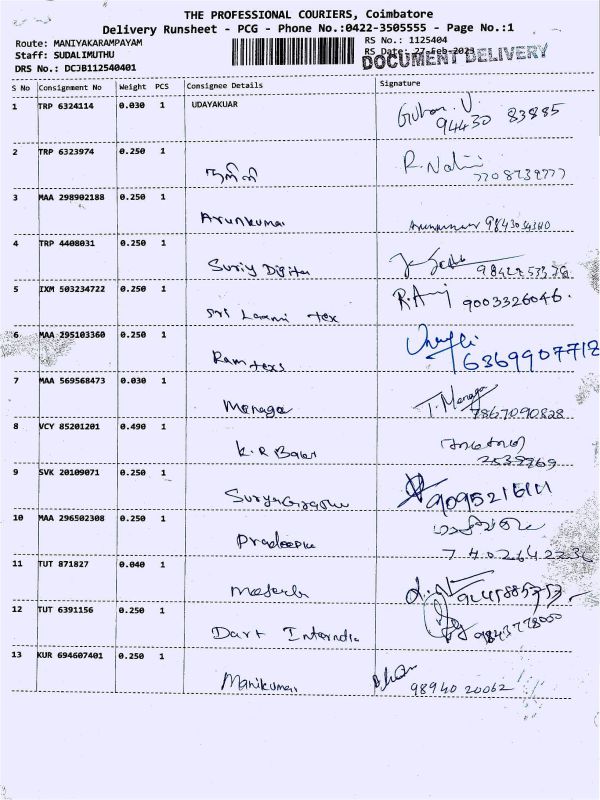 THE PROFESSIONAL COURIERS, Coimbatore
Delivery Runsheet - PCG - Phone No.:0422-3505555 - Page No.:1
Route: MANIYAKARAMPAYAM
RS No.: 1125404
Staff: SUDALIMUTHU
RS Date: 27-Feb-2023
DRS No.: DCJB112540401
DOCUMENT DELIVERY
S No Consignment No Weight PCS Consignee Details Signature
1 TRP 6324114 0.030 1 UDAYAKUAR
94430 83885
2 TRP 6323974 0.250 1
நளினி R. Nalini
7708738777
3 MAA 298902188 0.250 1
Arunkumar 9843034340
4 TRP 4408031 0.250 1
5 IXM 503234722 0.250 1
Sri Laxmi tex 9003326046.
6 MAA 295103360 0.250 1
Ram texs 6369907712
7 MAA 569568473 0.030 1
Menaga T. Menaga
7867090828
8 VCY 85201201 0.490 1
K.R Babu
2539869
9 SVK 20109071 0.250 1
10 MAA 296502308 0.250 1
Pradeepu
11 TUT 871827 0.040 1
12 TUT 6391156 0.250 1
Dart
9843778000
13 KUR 694607401 0.250 1
Manikumar
98940 20062